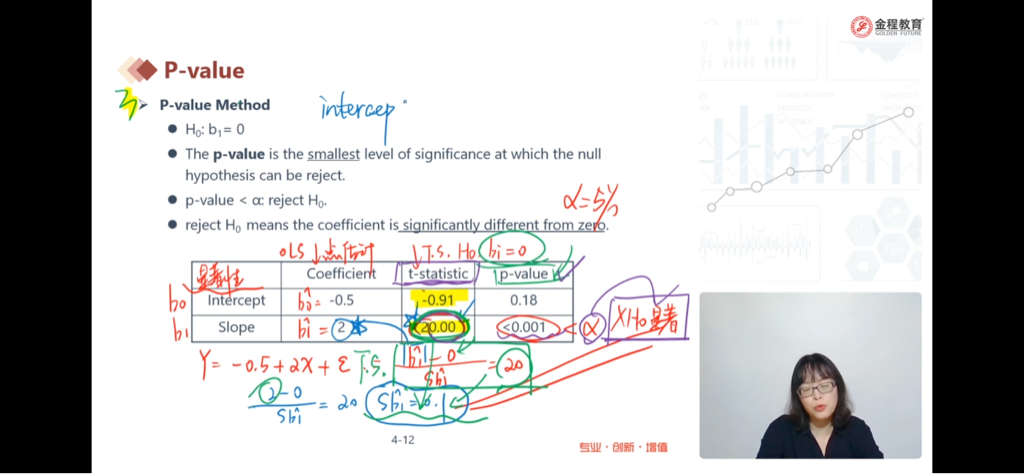 金程教育
GOLDEN FUTURE
P-value
3 P-value Method
intercep
H₀: b₁= 0
The p-value is the smallest level of significance at which the null
hypothesis can be reject.
p-value < α: reject H₀.
α=5%
reject H₀ means the coefficient is significantly different from zero.
OLS ↓点估计 ↓T.S. H₀ b₁=0
显著性 Coefficient t-statistic p-value
b₀ Intercept b̂₀= -0.5 -0.91 0.18
b₁ Slope b̂₁ = 2 20.00 <0.001 < α XH₀显著
Y = -0.5+2X+ε T.S. |b̂₁|-0 / Sb̂₁ = 20
2-0 / Sb̂₁ = 20 Sb̂₁=0.1
4-12
专业·创新·增值